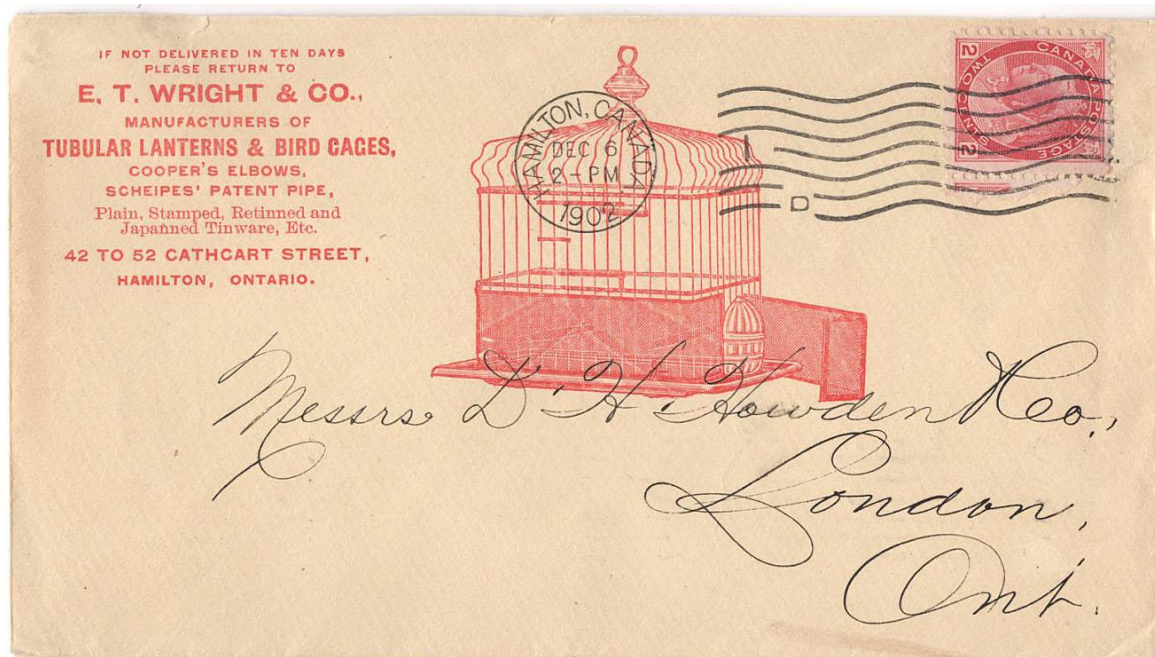 IF NOT DELIVERED IN TEN DAYS
PLEASE RETURN TO
E. T. WRIGHT & CO.,
MANUFACTURERS OF
TUBULAR LANTERNS & BIRD CAGES,
COOPER'S ELBOWS,
SCHEIPES' PATENT PIPE,
Plain, Stamped, Retinned and
Japanned Tinware, Etc.
42 TO 52 CATHCART STREET,
HAMILTON, ONTARIO.
HAMILTON, CANADA
DEC 6
2-PM
1902
I
D
CANADA POSTAGE
TWO CENTS
2
2
Messrs D. H. Howden & Co.,
London,
Ont.